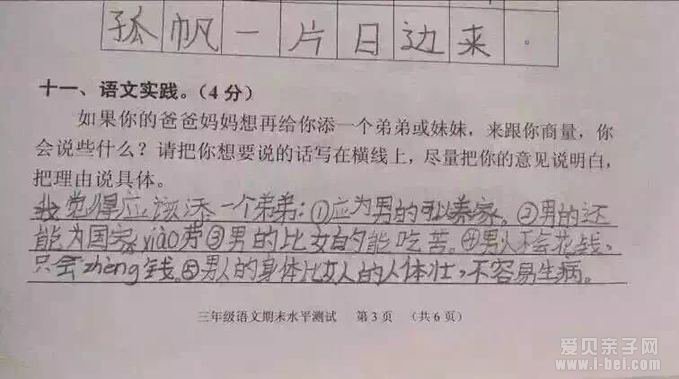 孤帆一片日边来。
十一、语文实践。(4分)
如果你的爸爸妈妈想再给你添一个弟弟或妹妹,来跟你商量,你
会说些什么?请把你想要说的话写在横线上,尽量把你的意见说明白,
把理由说具体。
我觉得应该添一个弟弟:①应为男的可以养家。②男的还
能为国家xiào劳③男的比女的能吃苦。④男人不会花钱,
只会zhèng钱。⑤男人的身体比女人的人体壮,不容易生病。
三年级语文期末水平测试 第3页 (共6页)
爱贝亲子网
www.i-bei.com